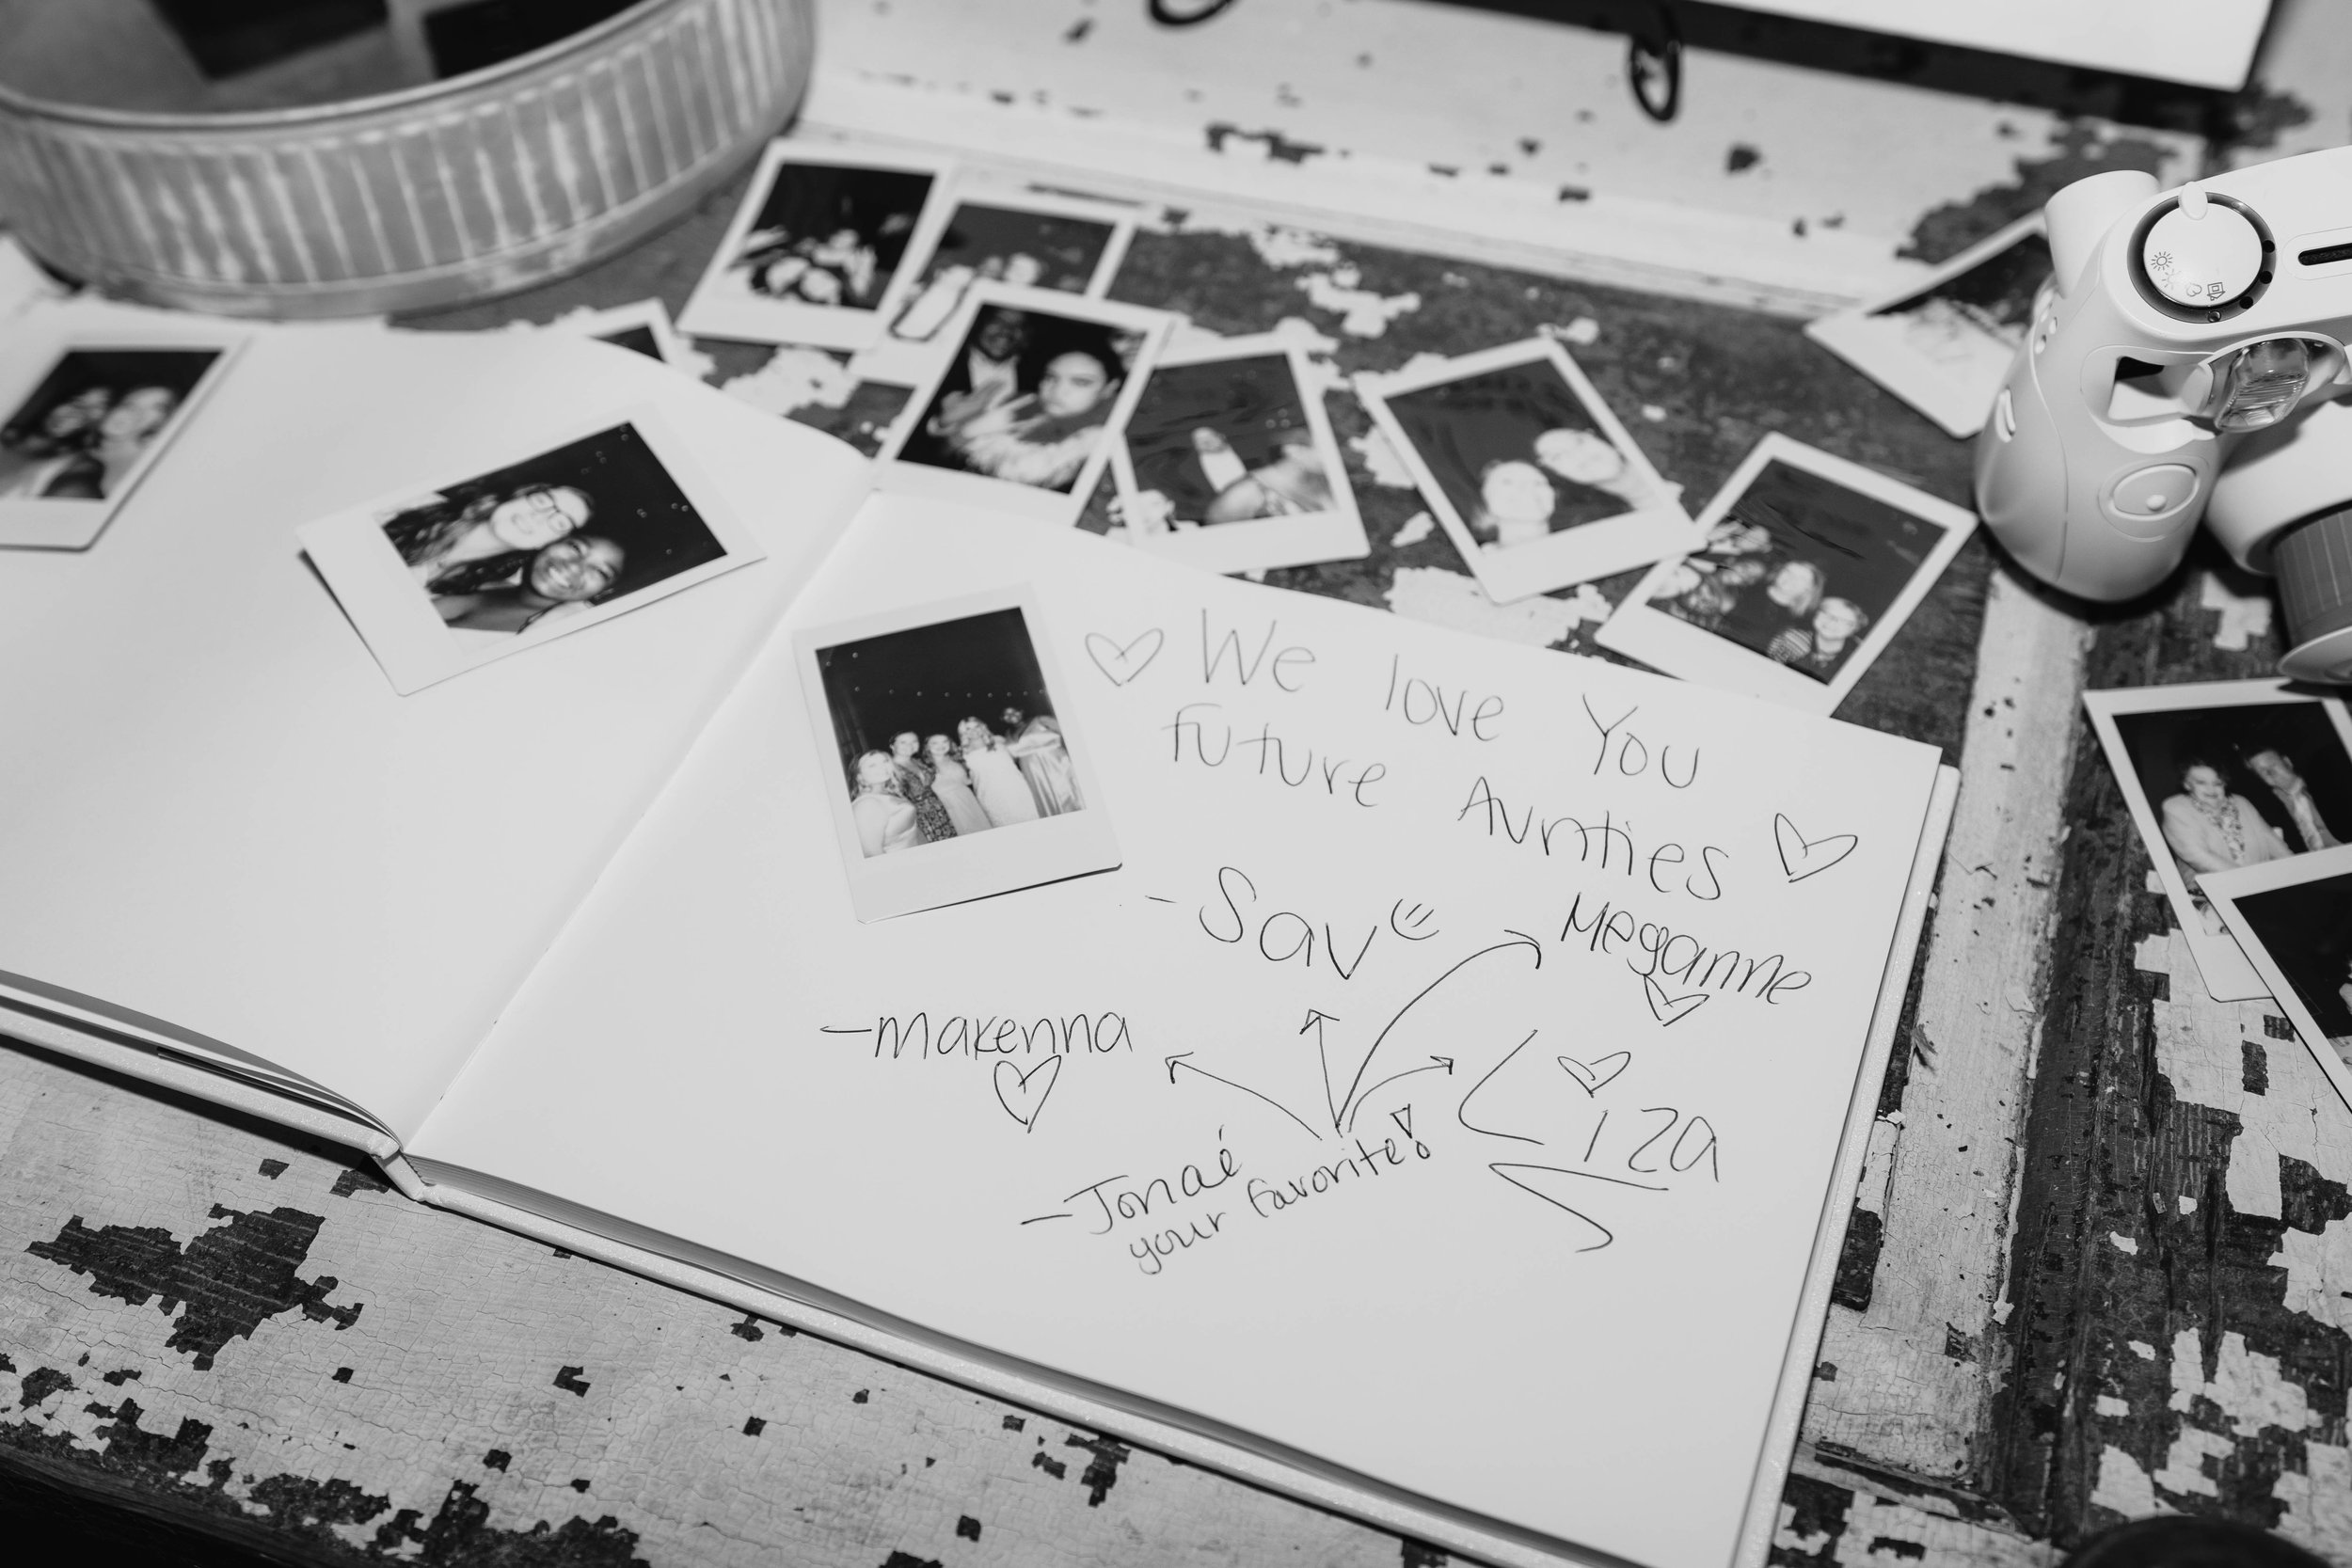 We love You
future Aunties
- Sav
Meganne
- makenna
Liza
- Jonaé
your favorite!